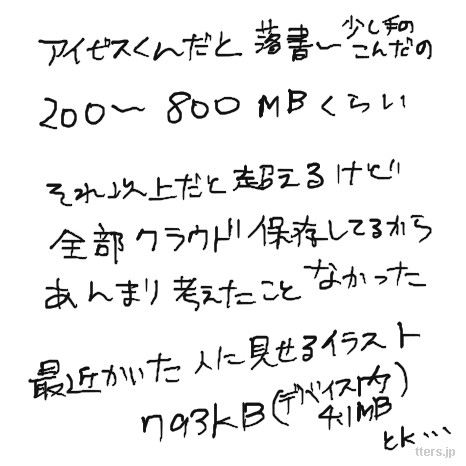 アイビスくんだと 落書〜少し手の
こんだの
200〜800MBくらい
それ以上だと超えるけど
全部クラウド保存してるから
あんまり考えたことなかった
最近かいた人に見せるイラスト
793KB(デバイス内
4.1MB)
とK…
tters.jp